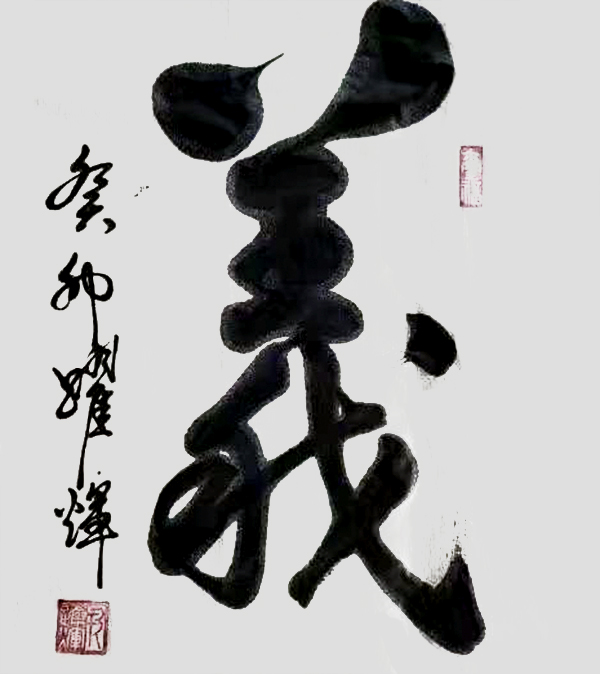 義
癸卯耀輝